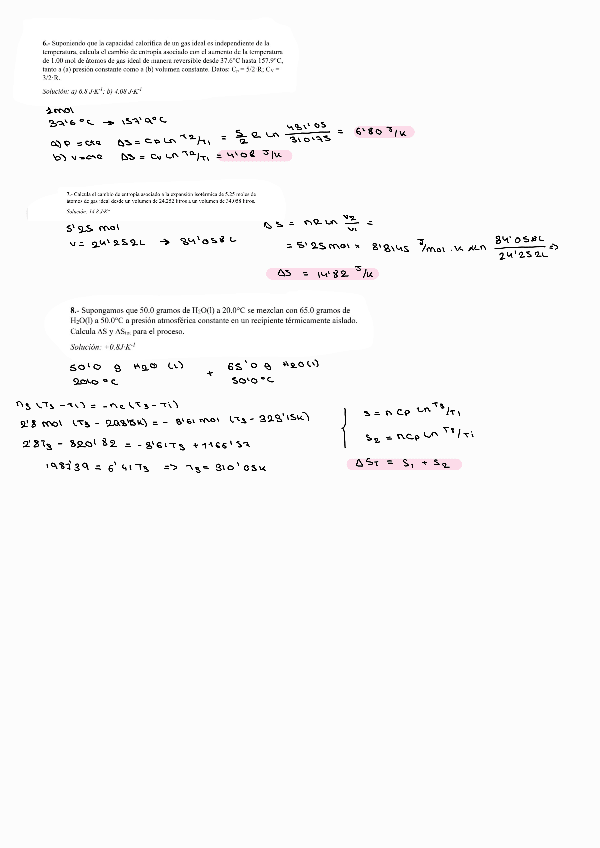 6.- Suponiendo que la capacidad calorífica de un gas ideal es independiente de la
temperatura, calcula el cambio de entropía asociado con el aumento de la temperatura
de 1.00 mol de átomos de gas ideal de manera reversible desde 37.6°C hasta 157.9°C,
tanto a (a) presión constante como a (b) volumen constante. Datos: Cp = 5/2·R; CV =
3/2·R.
Solución: a) 6.8 J·K-1; b) 4.08 J·K-1
1mol
37'6°C → 157'9°C
a) P = cte ΔS = Cp Ln T2/T1 = 5/2 R Ln 431'05/310'75 = 6'80 J/K
b) V = cte ΔS = Cv Ln T2/T1 = 4'08 J/K
7.- Calcula el cambio de entropía asociado a la expansión isotérmica de 5.25 moles de
átomos de gas ideal desde un volumen de 24.252 litros a un volumen de 34.058 litros.
Solución: 14.8 J·K-1
5'25 mol ΔS = nR Ln V2/V1 =
V = 24'252L → 34'058L
= 5'25 mol × 8'3145 J/mol·K × Ln 34'058L/24'252L ⇒
ΔS = 14'82 J/K
8.- Supongamos que 50.0 gramos de H2O(l) a 20.0°C se mezclan con 65.0 gramos de
H2O(l) a 50.0°C a presión atmosférica constante en un recipiente térmicamente aislado.
Calcula ΔS y ΔStot para el proceso.
Solución: +0.8J·K-1
50'0 g H2O (L) + 65'0 g H2O(L)
20'0 °C 50'0°C
(T3 - Ti) = - (T3 - Ti)
2'8 mol (T3 - 293'15K) = - 3'61 mol (T3 - 323'15K)
2'8T3 - 820'82 = -3'61T3 + 1166'57
1987'39 = 6'41T3 ⇒ T3 = 310'05K
S = nCp Ln T3/T1
S2 = nCp Ln T3/Ti
ΔST = S1 + S2